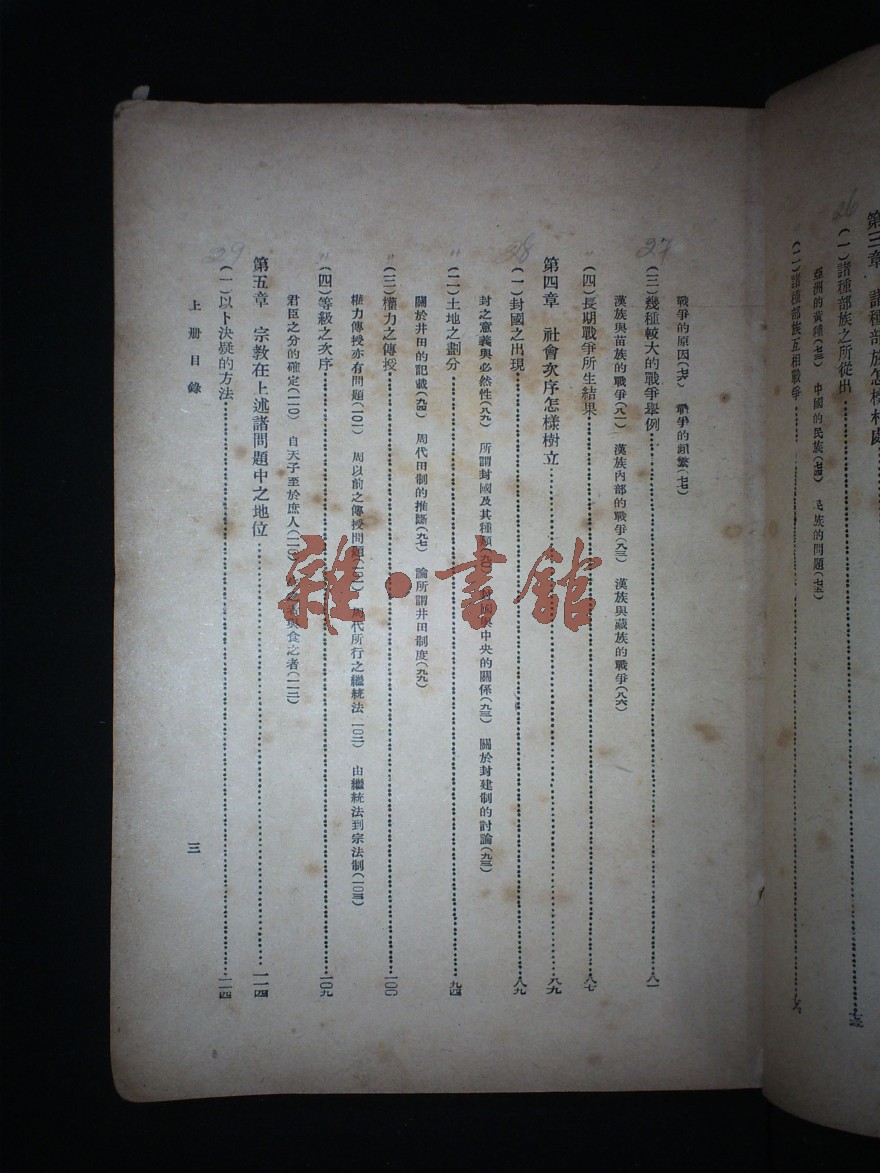 第三章 諸種部族怎樣相處
26
(一)諸種部族之所從出……七三
亞洲的黃種(七三) 中國的民族(七四) 民族的問題(七五)
(二)諸種部族互相戰爭……七六
戰爭的原因(七六) 戰爭的頻繁(七七)
27
(三)幾種較大的戰爭舉例……八一
漢族與苗族的戰爭(八一) 漢族內部的戰爭(八三) 漢族與藏族的戰爭(八六)
〃
(四)長期戰爭所生結果……八七
第四章 社會次序怎樣樹立……八九
28
(一)封國之出現……八九
封之意義與必然性(八九) 所謂封國及其種類(九〇) 封國與中央的關係(九三) 關於封建制的討論(九三)
〃
(二)土地之劃分……九四
關於井田的記載(九四) 周代田制的推斷(九七) 論所謂井田制度(九九)
〃
(三)權力之傳授……一〇〇
權力傳授亦有問題(一〇一) 周以前之傳授問題(一〇二) 周代所行之繼統法(一〇二) 由繼統法到宗法制(一〇三)
〃
(四)等級之次序……一〇九
君臣之分的確定(一一〇) 自天子至於庶人(一一〇) 之者與食之者(一一二)
第五章 宗教在上述諸問題中之地位……一一四
29
(一)以卜決疑的方法……一一四
上册目錄
三
雜·書館